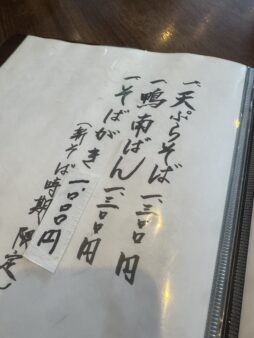 一、天ぷらそば 一、三〇〇円
一、鴨南ばん 一、三〇〇円
一、そばがき 一、〇〇〇円
(新そば時期限定)